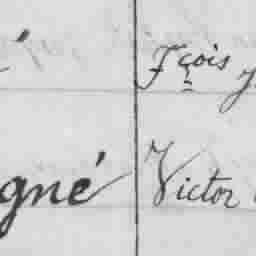 Fçois
gné Victor